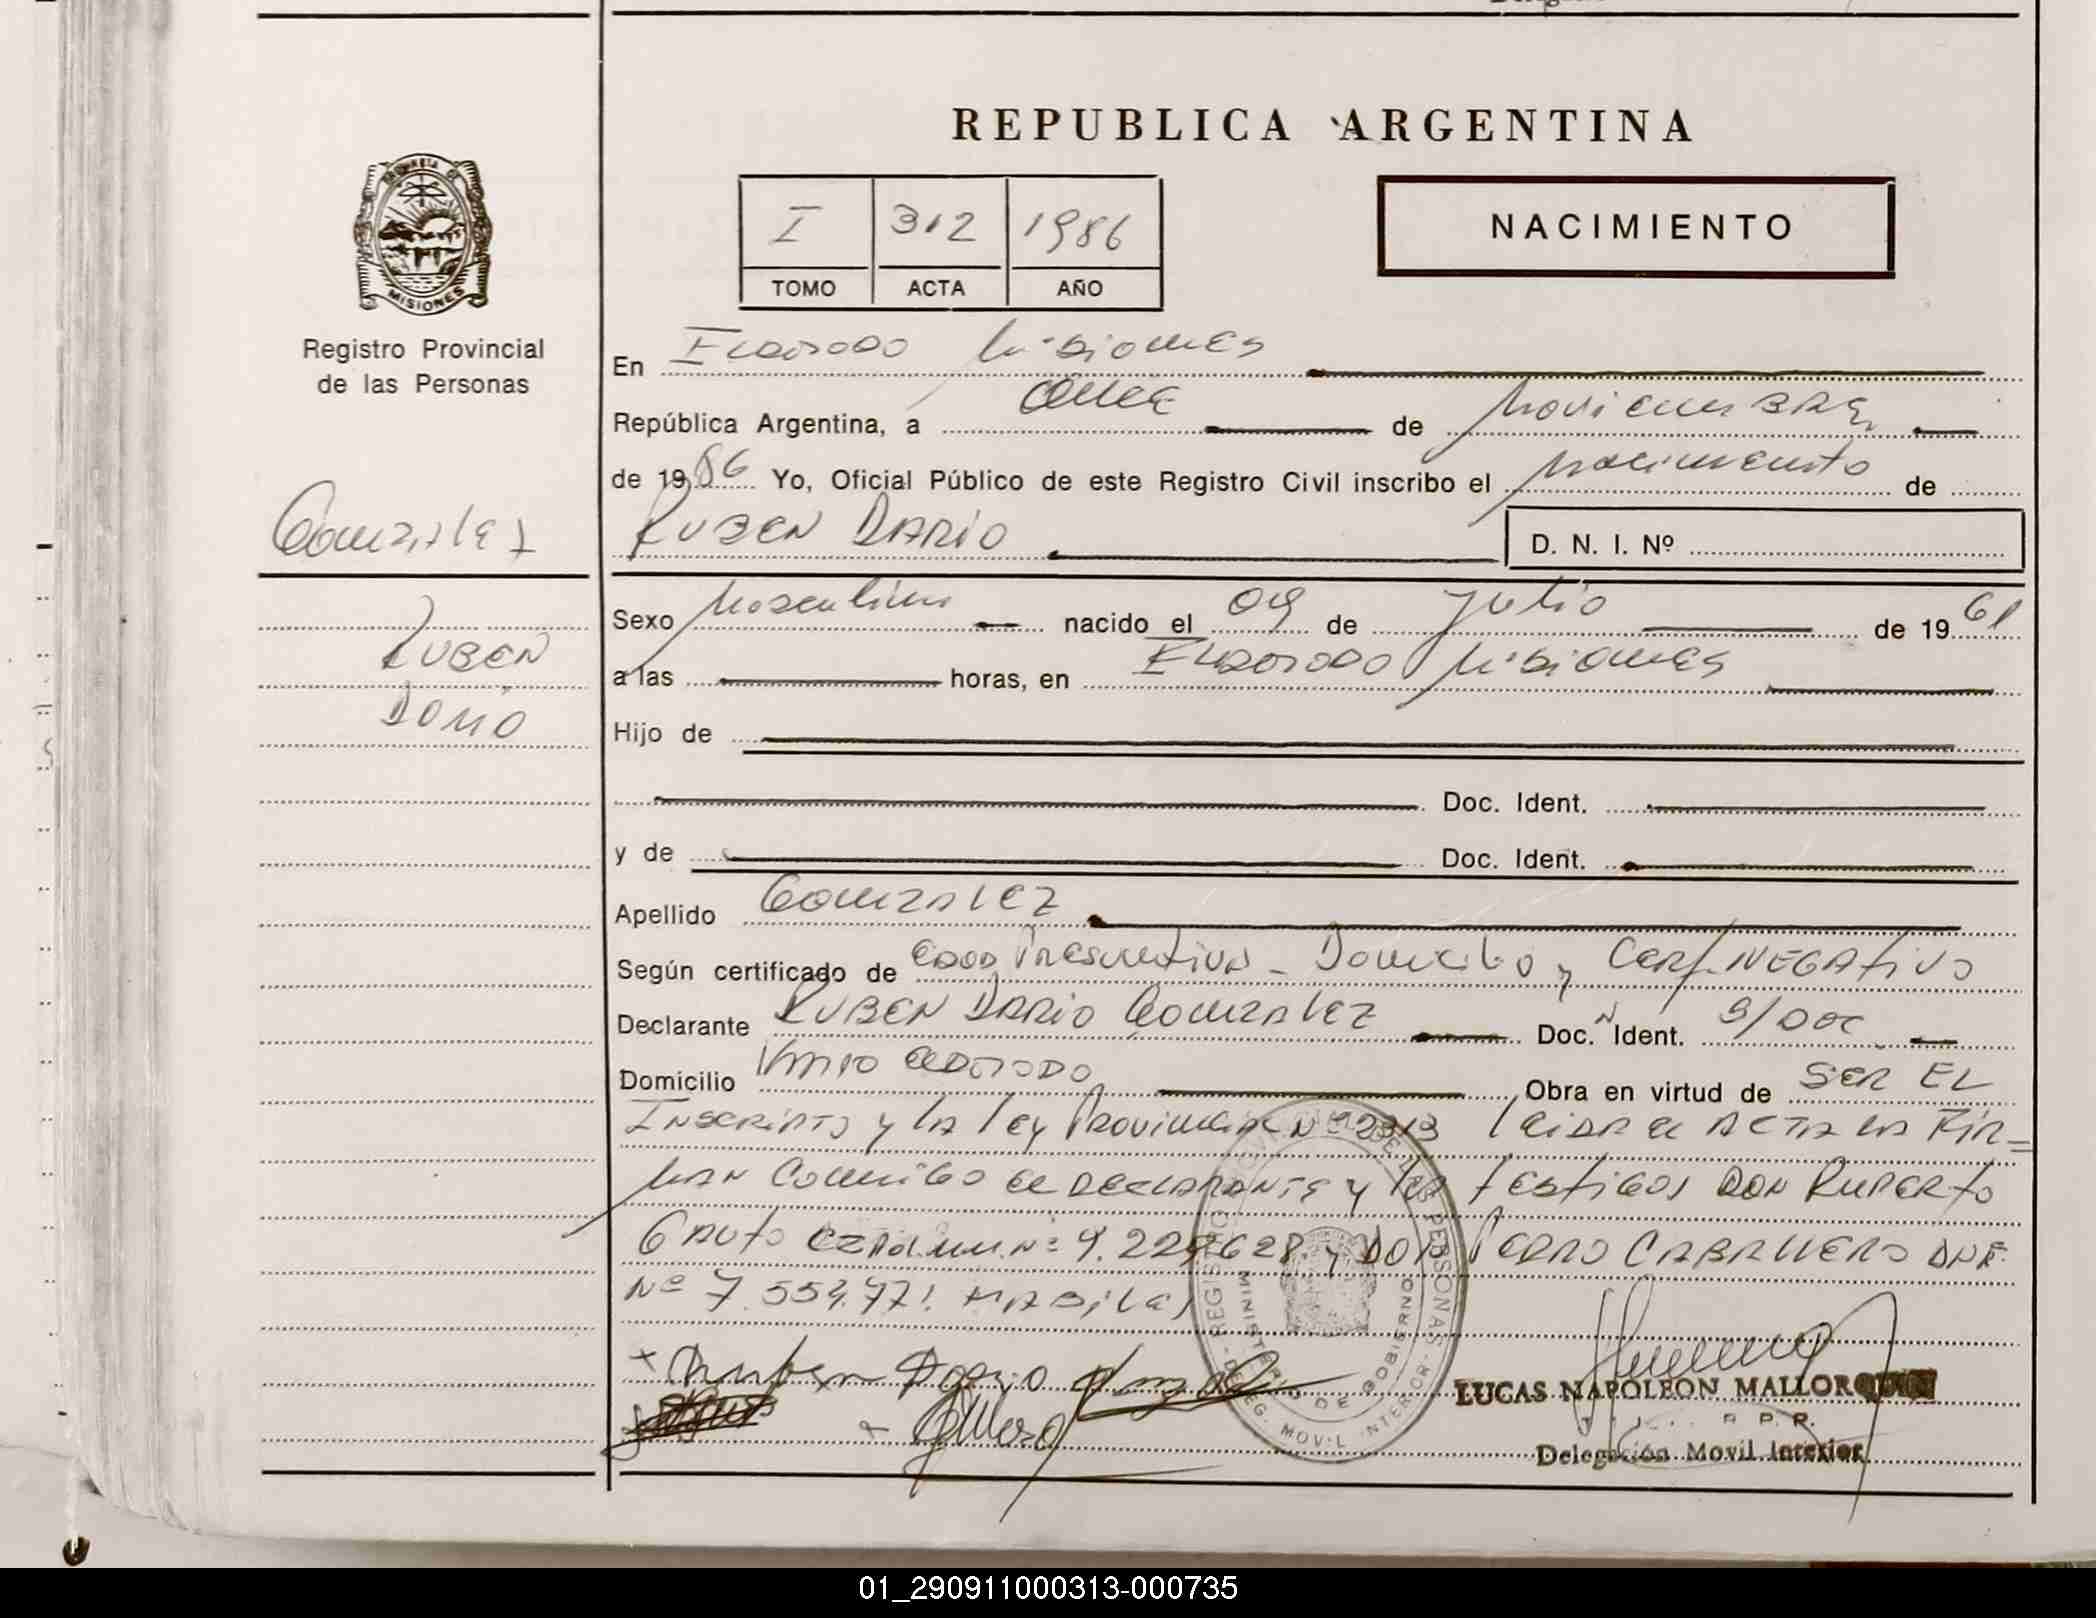 REPUBLICA ARGENTINA
I 312 1986
TOMO ACTA AÑO
NACIMIENTO
MISIONES
Registro Provincial
de las Personas
En Eldorado Misiones
República Argentina, a once de Noviembre
de 1986 Yo, Oficial Público de este Registro Civil inscribo el Nacimiento de
Gonzalez
RUBEN DARIO
D. N. I. Nº
RUBEN
DARIO
Sexo Masculino nacido el 09 de Julio de 1961
a las horas, en Eldorado Misiones
Hijo de
Doc. Ident.
y de Doc. Ident.
Apellido GONZALEZ
Según certificado de EDAD Presuntiva - Domicilio y CERT. NEGATIVO
Declarante RUBEN DARIO GONZALEZ Doc. Ident. S/DOC
Domicilio ELDORADO Obra en virtud de SER EL
INSCRIPTO y LA Ley Provincial Nº 2313 leida el ACTA la FIR=
MAN CONMIGO el DECLARANTE y los testigos DON RUPERTO
GAUTO Nº 9.229628 y DON PEDRO CABALLERO DNI
Nº 7.554.771. HABILES
Ruben Dario
LUCAS NAPOLEON MALLORQUIN
R. P. P.
Delegación Movil Interior
REGISTRO PROVINCIAL DE LAS PERSONAS
MINISTERIO DE GOBIERNO
DELEG. MOVIL INTERIOR
01_290911000313-000735